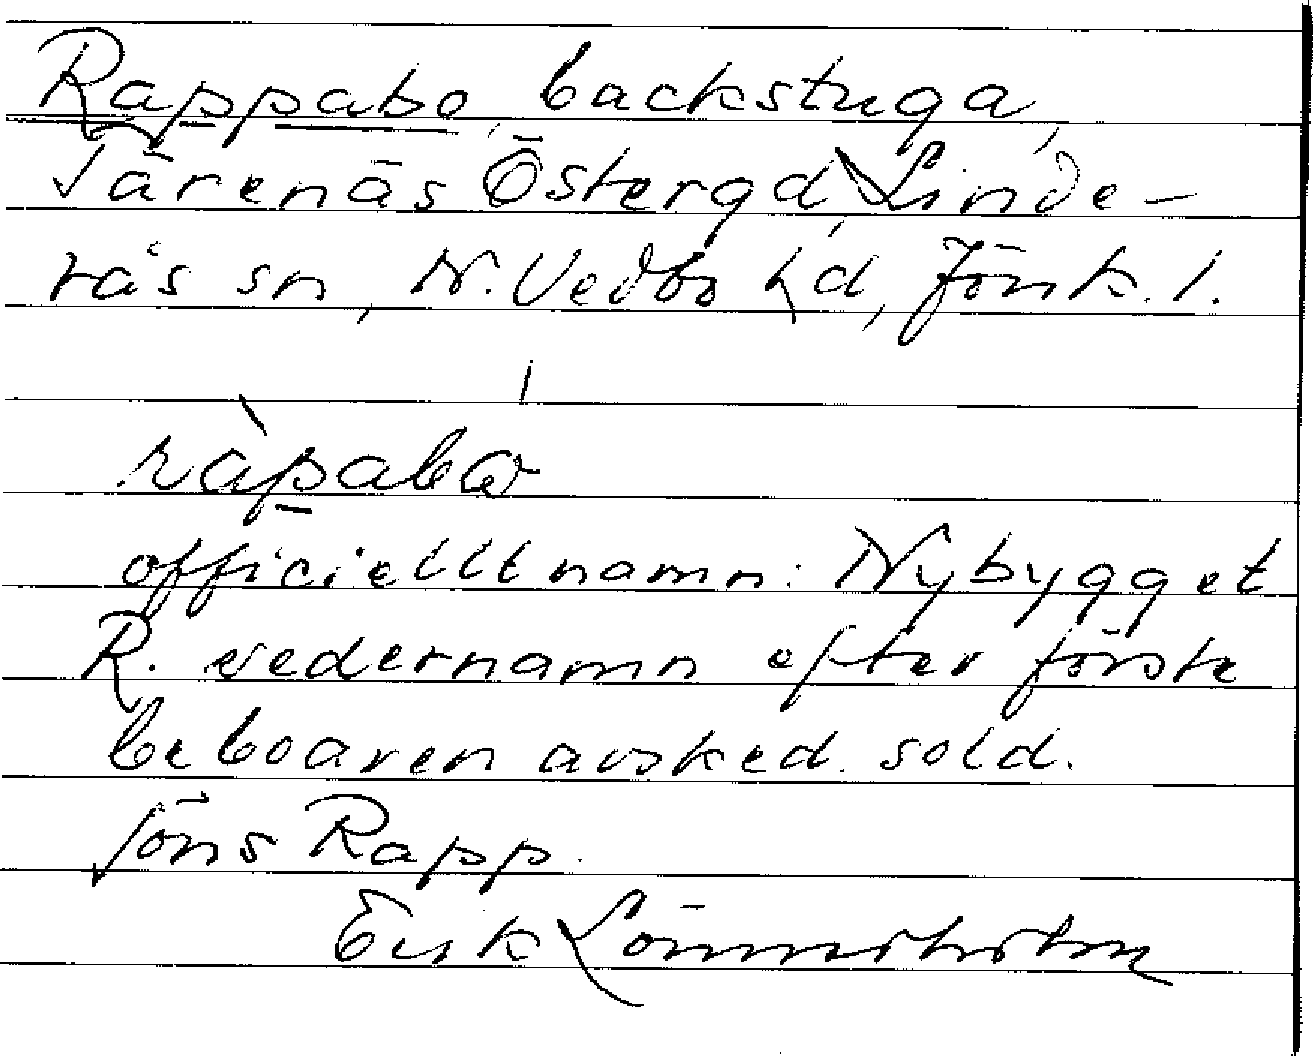 Rappabo, backstuga,
Järenäs Östergd, Linde-
rås sn, N. Vedbo hd, Jönk. l.
ràpabω
officiellt namn: Nybygget
R. vedernamn efter förste
beboaren avsked. sold.
Jöns Rapp.
Erik Lönnerholm